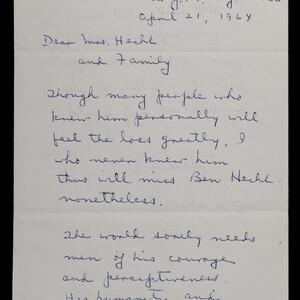 April 21, 1964
Dear Mrs. Hecht
and Family
Though many people who
knew him personally will
feel the loss greatly, I
who never knew him
thus will miss Ben Hecht
nonetheless.
The world sorely needs
men of his courage
and perceptiveness.
His humanity and